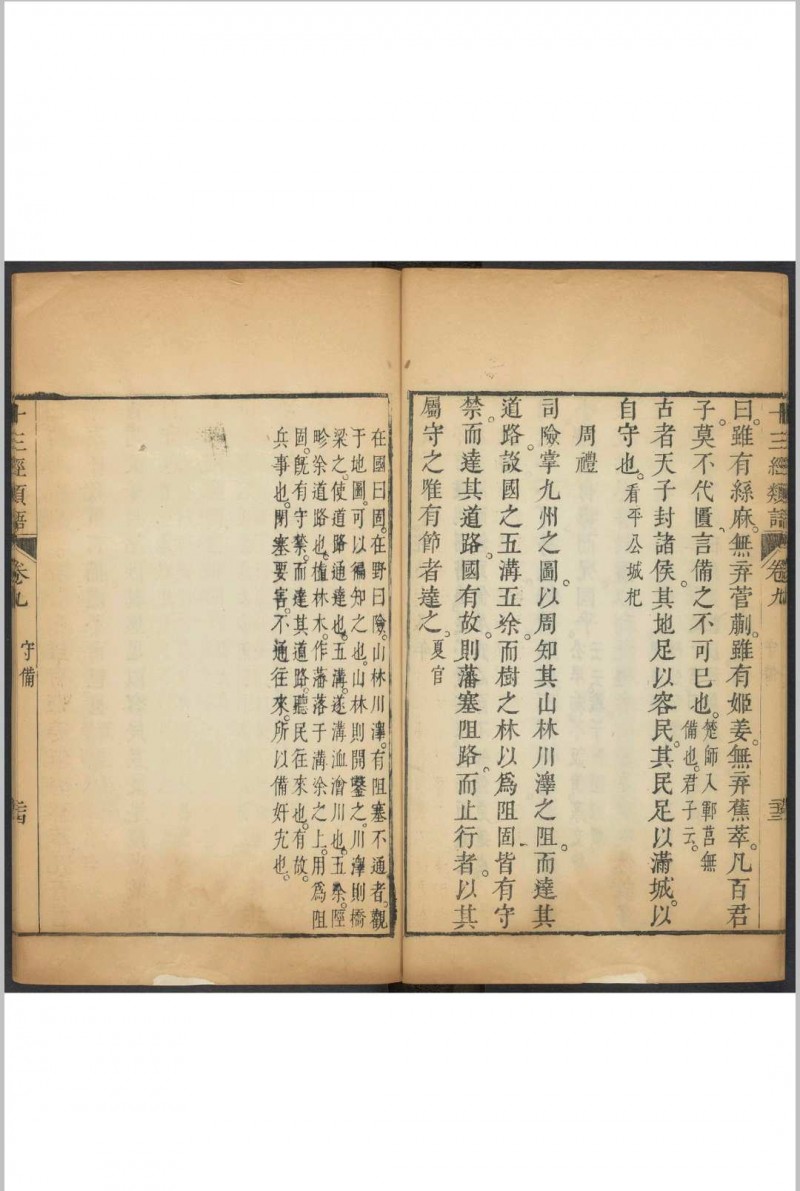 十三經類語 卷九
曰。雖有絲麻。無弃菅蒯。雖有姬姜。無弃蕉萃。凡百君
子。莫不代匱。言備之不可已也。楚師入鄆莒無備也。君子云。
古者天子封諸侯。其地足以容民。其民足以滿城。以
自守也。看平公城杞
周禮
司險掌九州之圖。以周知其山林川澤之阻。而達其
道路。設國之五溝五涂。而樹之林以爲阻固皆有守
禁。而達其道路。國有故。則藩塞阻路。而止行者。以其
屬守之唯有節者達之。夏官
在國曰固。在野曰險。山林川澤。有阻塞不通者。觀
于地圖。可以徧知之也。山林則開鑿之。川澤則橋
梁之。使道路通達也。五溝。遂溝洫澮川也。五涂。徑
畛涂道路也。植林木。作藩落于溝涂之上。用爲阻
固。旣有守禁。而達其道路。聽民往來也。有故。
兵事也。閉塞要害。不通往來。所以備奸宄也。
十三經類語 卷九 守備